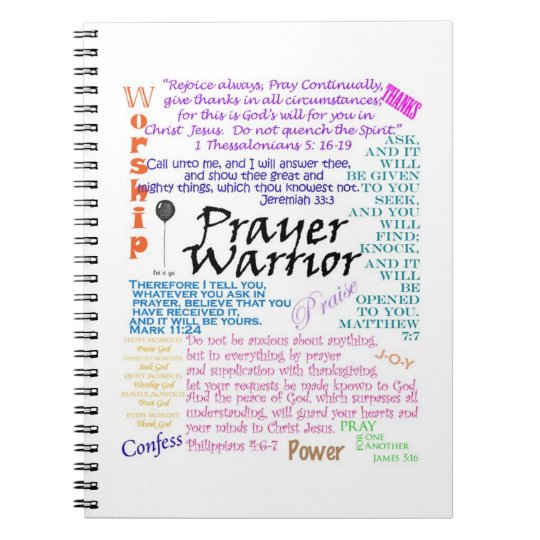 Worship
"Rejoice always, Pray Continually,
give thanks in all circumstances,
for this is God's will for you in
Christ Jesus. Do not quench the Spirit."
1 Thessalonians 5: 16-19
THANKS
Call unto me, and I will answer thee,
and show thee great and
mighty things, which thou knowest not.
Jeremiah 33:3
ASK,
AND IT
WILL
BE GIVEN
TO YOU
SEEK,
AND YOU
WILL
FIND;
KNOCK,
AND IT
WILL
BE
OPENED
TO YOU.
MATTHEW
7:7
let it go
Prayer
Warrior
Therefore I tell you,
whatever you ask in
prayer, believe that you
have received it,
and it will be yours.
Mark 11:24
Praise
HAPPY MOMENTS
Praise God
DIFFICULT MOMENTS
Seek God
QUIET MOMENTS
Worship God
PAINFUL MOMENTS
Trust God
EVERY MOMENT
Thank God
Do not be anxious about anything,
but in everything by prayer
and supplication with thanksgiving
let your requests be made known to God.
And the peace of God, which surpasses all
understanding, will guard your hearts and
your minds in Christ Jesus.
Philippians 4:6-7
J-O-Y
Confess
Power
PRAY
FOR ONE
ANOTHER
JAMES 5:16